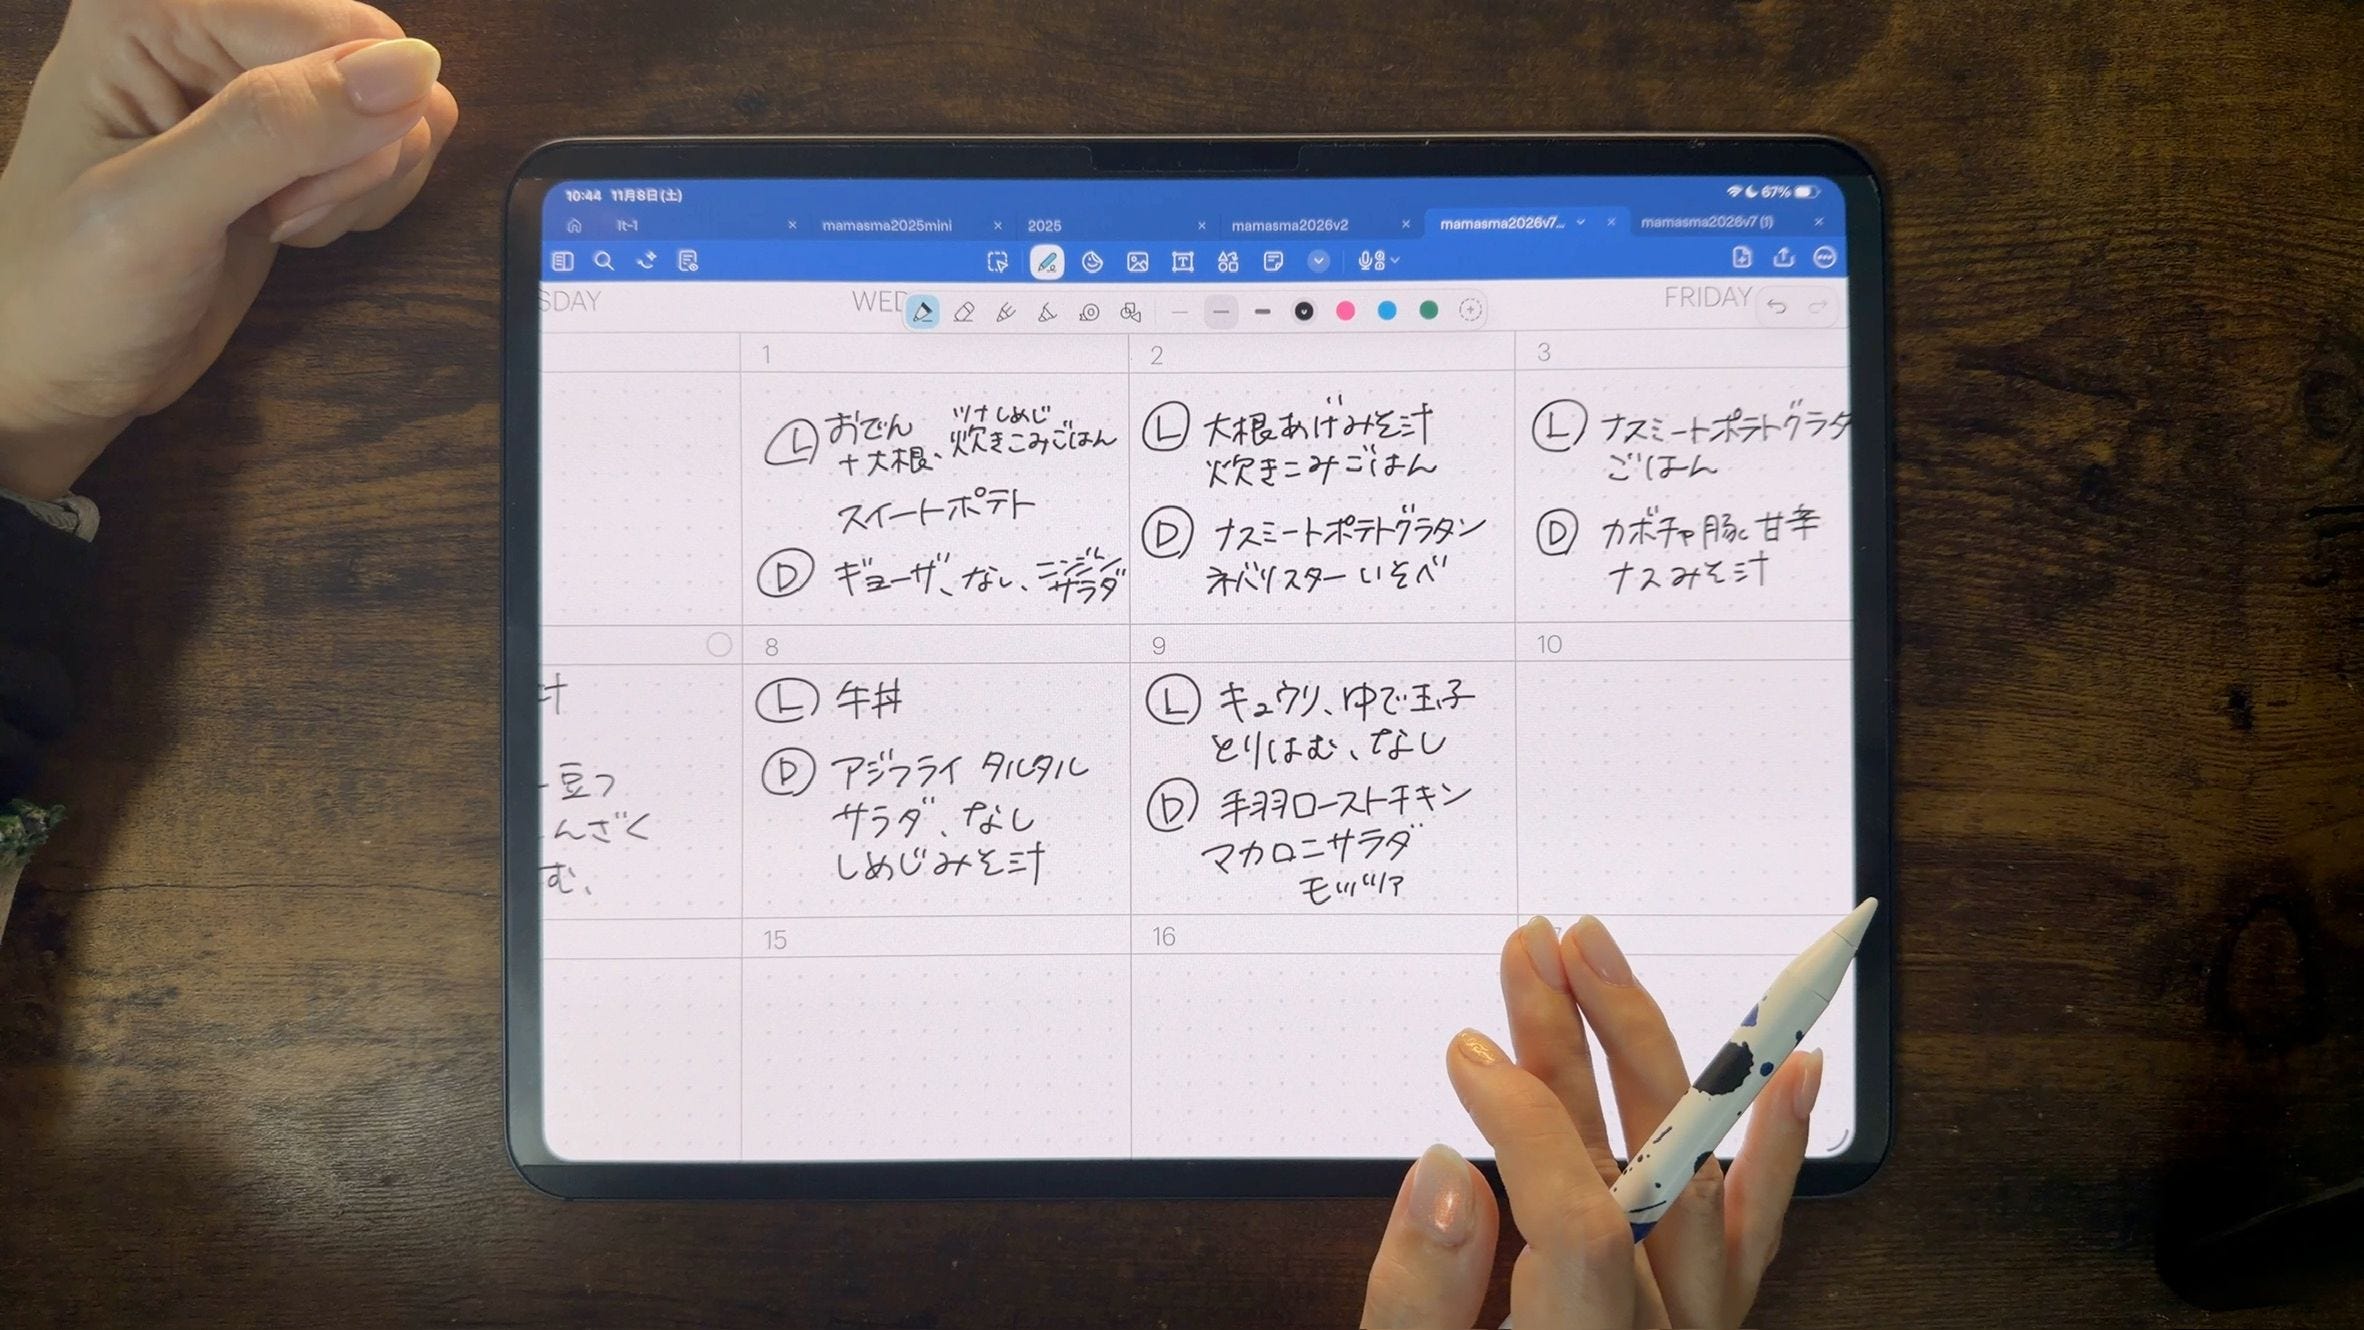 10:44 11月8日(土)
67%
mamasma2025mini
2025
mamasma2026v2
mamasma2026v7...
mamasma2026v7 (1)
SDAY
WED
FRIDAY
1
Ⓛ おでん ツナしめじ
+大根、炊きこみごはん
スイートポテト
Ⓓ ギョーザ、なし、ニンジン
サラダ
2
Ⓛ 大根あげみそ汁
炊きこみごはん
Ⓓ ナスミートポテトグラタン
ネバリスター いそべ
3
Ⓛ ナスミートポテトグラタ
ごはん
Ⓓ カボチャ豚 甘辛
ナスみそ汁
汁
豆つ
んざく
む、
8
Ⓛ 牛丼
Ⓓ アジフライ タルタル
サラダ、なし
しめじみそ汁
9
Ⓛ キュウリ、ゆで玉子
とりはむ、なし
Ⓓ 手羽ローストチキン
マカロニサラダ
モッツァ
10
15
16